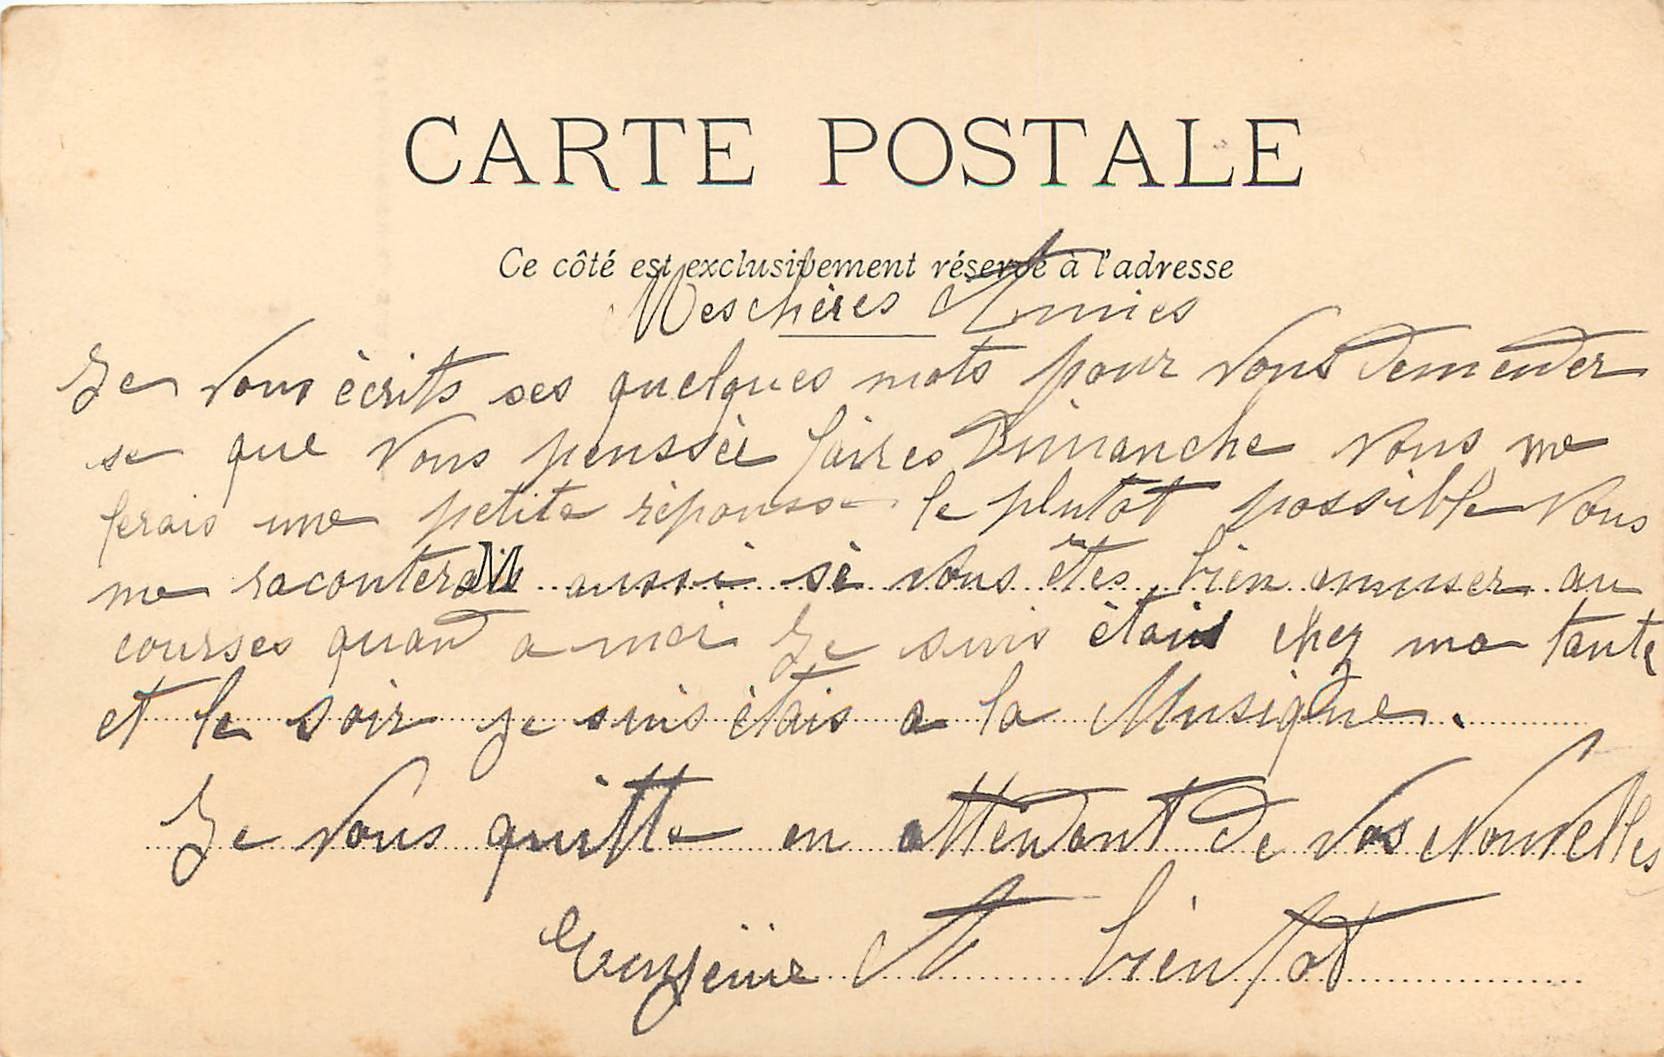 CARTE POSTALE
Ce côté est exclusivement réservé à l'adresse
Meschères Amies
Je vous écrits ses quelques mots pour vous demender
se que vous penssèe faires Dimanche vous me
ferais une petite réponse le plutot possible Vous
me raconterais aussi si vous êtes bien amuser au
courses quand a moi Je suis étais chez ma tante
et le soir je suis étais a la Musique.
Je vous quitte en attendant de vos Nouvelles
Eugènie A bientot